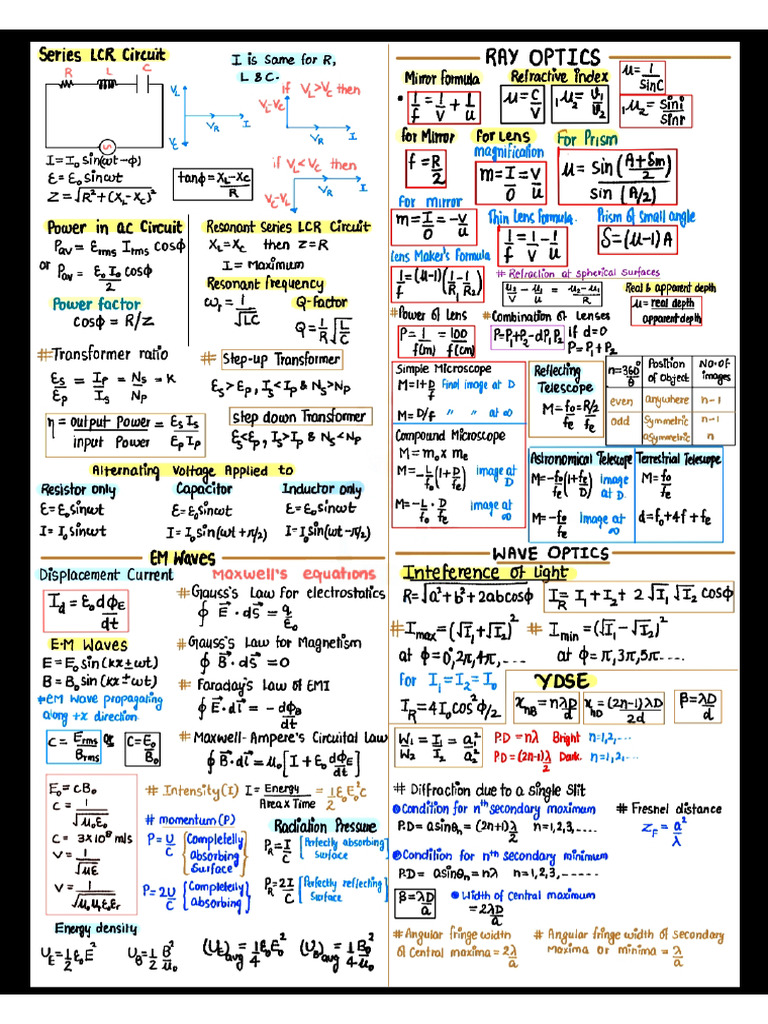 Series LCR Circuit
R L C
I is same for R,
L & C.
V_L
V_C
V_R
I
if V_L>V_C then
V_L-V_C
V_R
I
if V_L<V_C then
V_R
I
V_C-V_L
I = I₀ sin(ωt-ϕ)
Ɛ = Ɛ₀ sinωt
Z = √R² + (X_L - X_C)²
tanϕ = X_L - X_C / R
Power in ac Circuit
P_av = Ɛ_rms I_rms cosϕ
or P_av = Ɛ₀ I₀ cosϕ / 2
Power factor
cosϕ = R/Z
Resonant Series LCR Circuit
X_L = X_C then Z = R
I = Maximum
Resonant frequency
ω_r = 1/√LC
Q-factor
Q = 1/R √L/C
# Transformer ratio
Ɛ_S/Ɛ_P = I_P/I_S = N_S/N_P = K
η = output Power / input Power = Ɛ_S I_S / Ɛ_P I_P
# Step-up Transformer
Ɛ_S > Ɛ_P, I_S < I_P & N_S > N_P
step down Transformer
Ɛ_S<Ɛ_P, I_S>I_P & N_S<N_P
Alternating Voltage Applied to
Resistor only
Ɛ = Ɛ₀ sinωt
I = I₀ sinωt
Capacitor
Ɛ = Ɛ₀ sinωt
I = I₀ sin(ωt + π/2)
Inductor only
Ɛ = Ɛ₀ sinωt
I = I₀ sin(ωt - π/2)
EM Waves
Displacement Current
I_d = Ɛ₀ dϕ_E/dt
E·M Waves
E = E₀ sin(kx ± ωt)
B = B₀ sin(kx ± ωt)
* EM Wave propagating
along +x direction
C = E_rms/B_rms or C = E₀/B₀
Maxwell's equations
# Gauss's Law for electrostatics
∮ E⃗·ds⃗ = q/Ɛ₀
# Gauss's Law for Magnetism
∮ B⃗·ds⃗ = 0
# Faraday's Law of EMI
∮ E⃗·dl⃗ = - dϕ_B/dt
# Maxwell-Ampere's Circuital Law
∮ B⃗·dl⃗ = μ₀[I + Ɛ₀ dϕ_E/dt]
E₀ = CB₀
C = 1/√μ₀Ɛ₀
C = 3×10⁸ m/s
V = 1/√μƐ
V = 1/√μ₀μ_rƐ₀Ɛ_r
# Intensity(I) I = Energy / Area x Time = 1/2 Ɛ₀E₀²C
# momentum(P)
P = U/C {Completelly absorbing Surface}
P = 2U/C {Completely absorbing}
Radiation Pressure
P_R = I/C [Perfectly absorbing Surface]
P_R = 2I/C [Perfectly reflecting Surface]
Energy density
U_E = 1/2 Ɛ₀E²
U_B = 1/2 B²/μ₀
(U_E)avg = 1/4 Ɛ₀E₀²
(U_B)avg = 1/4 B₀²/μ₀
RAY OPTICS
Mirror formula
1/f = 1/V + 1/u
Refractive index
μ = C/V
₁μ₂ = V₁/V₂
μ = 1/sinC
₁μ₂ = sini/sinr
for Mirror
f = R/2
For Lens
magnification
m = I/O = V/u
For Prism
μ = sin(A+δm/2) / sin(A/2)
For mirror
m = I/O = -V/u
Thin Lens formula.
1/f = 1/V - 1/u
Prism of Small angle
δ = (μ-1)A
Lens Maker's Formula
1/f = (μ-1)(1/R₁ - 1/R₂)
# Refraction at spherical surfaces
μ₂/V - μ₁/u = μ₂-μ₁/R
Real & apparent depth
μ = real depth / apparent depth
* Power of Lens
P = 1/f(m) = 100/f(cm)
# Combination of Lenses
P = P₁+P₂-dP₁P₂ if d=0
P = P₁+P₂
Simple Microscope
M = 1+D/f Final image at D
M = D/f " " at ∞
Compound Microscope
M = m₀ x mₑ
M = -L/f₀(1+D/fₑ) image at D
M = -L/f₀ · D/fₑ image at ∞
Reflecting
Telescope
M = f₀/fₑ = R/2/fₑ
n = 360°/θ Position of Object No·of images
even anywhere n-1
odd Symmetric n-1
asymmetric n
Astronomical Telescope
M = -f₀/fₑ(1+fₑ/D) image at D.
M = -f₀/fₑ Image at ∞
Terrestrial Telescope
M = f₀/fₑ
d = f₀+4f+fₑ
WAVE OPTICS
Inteference of Light
R = √a²+b²+2abcosϕ
I_R = I₁+I₂+2√I₁√I₂ cosϕ
# I_max = (√I₁+√I₂)²
at ϕ = 0,2π,4π,....
# I_min = (√I₁-√I₂)²
at ϕ = π,3π,5π....
for I₁=I₂=I₀
I_R = 4I₀cos²ϕ/2
YDSE
x_nB = nλD/d
x_nD = (2n-1)λD/2d
β = λD/d
W₁/W₂ = I₁/I₂ = a₁²/a₂²
P.D = nλ Bright n=1,2,...
P.D = (2n-1)λ/2 Dark. n=1,2,...
# Diffraction due to a single slit
Condition for nth secondary maximum
P.D = asinθn = (2n+1)λ/2 n=1,2,3,....
# Fresnel distance
Z_F = a²/λ
Condition for nth secondary minimum
P.D = asinθn = nλ n=1,2,3,......
β = λD/a
Width of Central maximum
= 2λD/a
# Angular fringe width
of Central maxima = 2λ/a
# Angular fringe width of secondary
Maxima or minima = λ/a